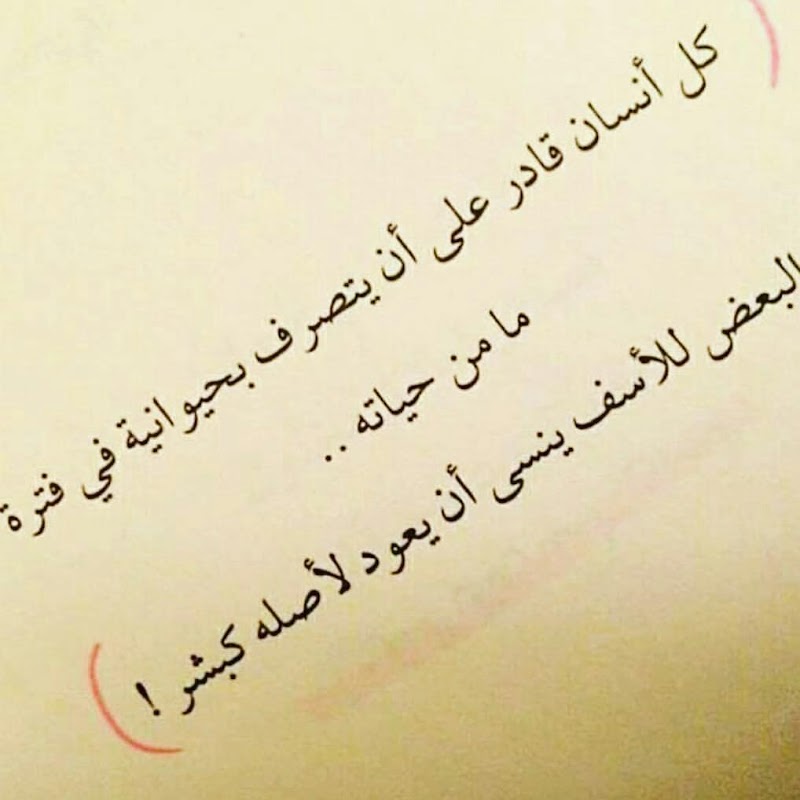 كل أنسان قادر على أن يتصرف بحيوانية في فترة
ما من حياته ..
البعض للأسف ينسى أن يعود لأصله كبشر !